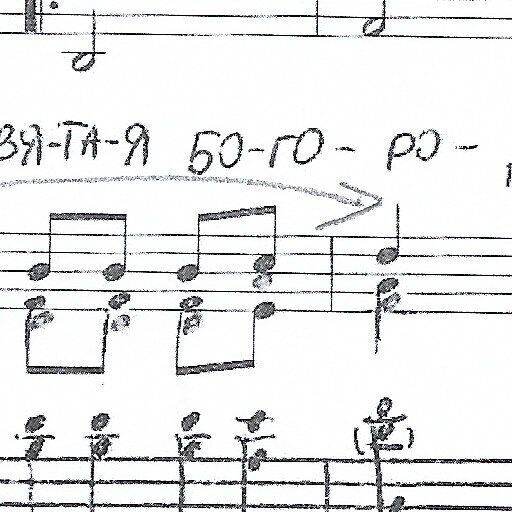 ЗЯ-ТА-Я БО-ГО- РО-